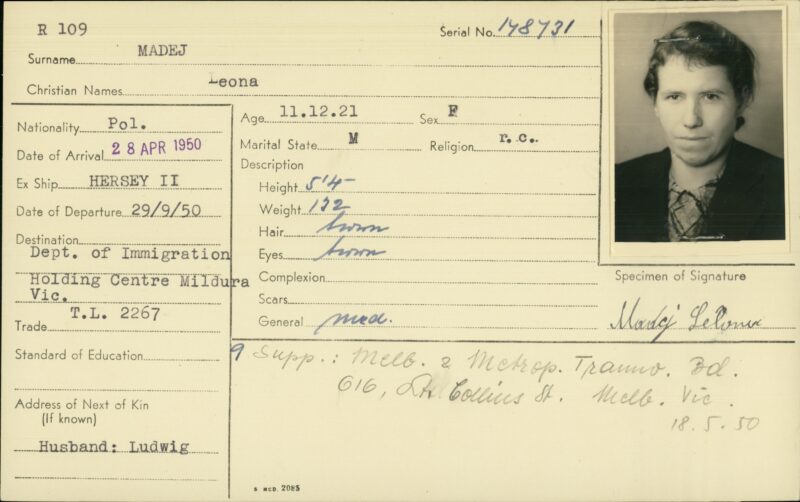 R 109
Serial No. 148731
MADEJ
Surname
Christian Names Leona
Nationality Pol.
Date of Arrival 28 APR 1950
Ex Ship HERSEY II
Date of Departure 29/9/50
Destination
Dept. of Immigration
Holding Centre Mildura
Vic.
T.L. 2267
Trade
Standard of Education
Address of Next of Kin
(If known)
Husband: Ludwig
Age 11.12.21 Sex F
Marital State M Religion r.c.
Description
Height 5'4
Weight 132
Hair brown
Eyes brown
Complexion
Scars
General med.
Specimen of Signature
Madej
9 Supp.: Melb. & Metrop. Tramw. Bd.
616, Lt. Collins St. Melb. Vic.
18.5.50
S. MCD. 2085